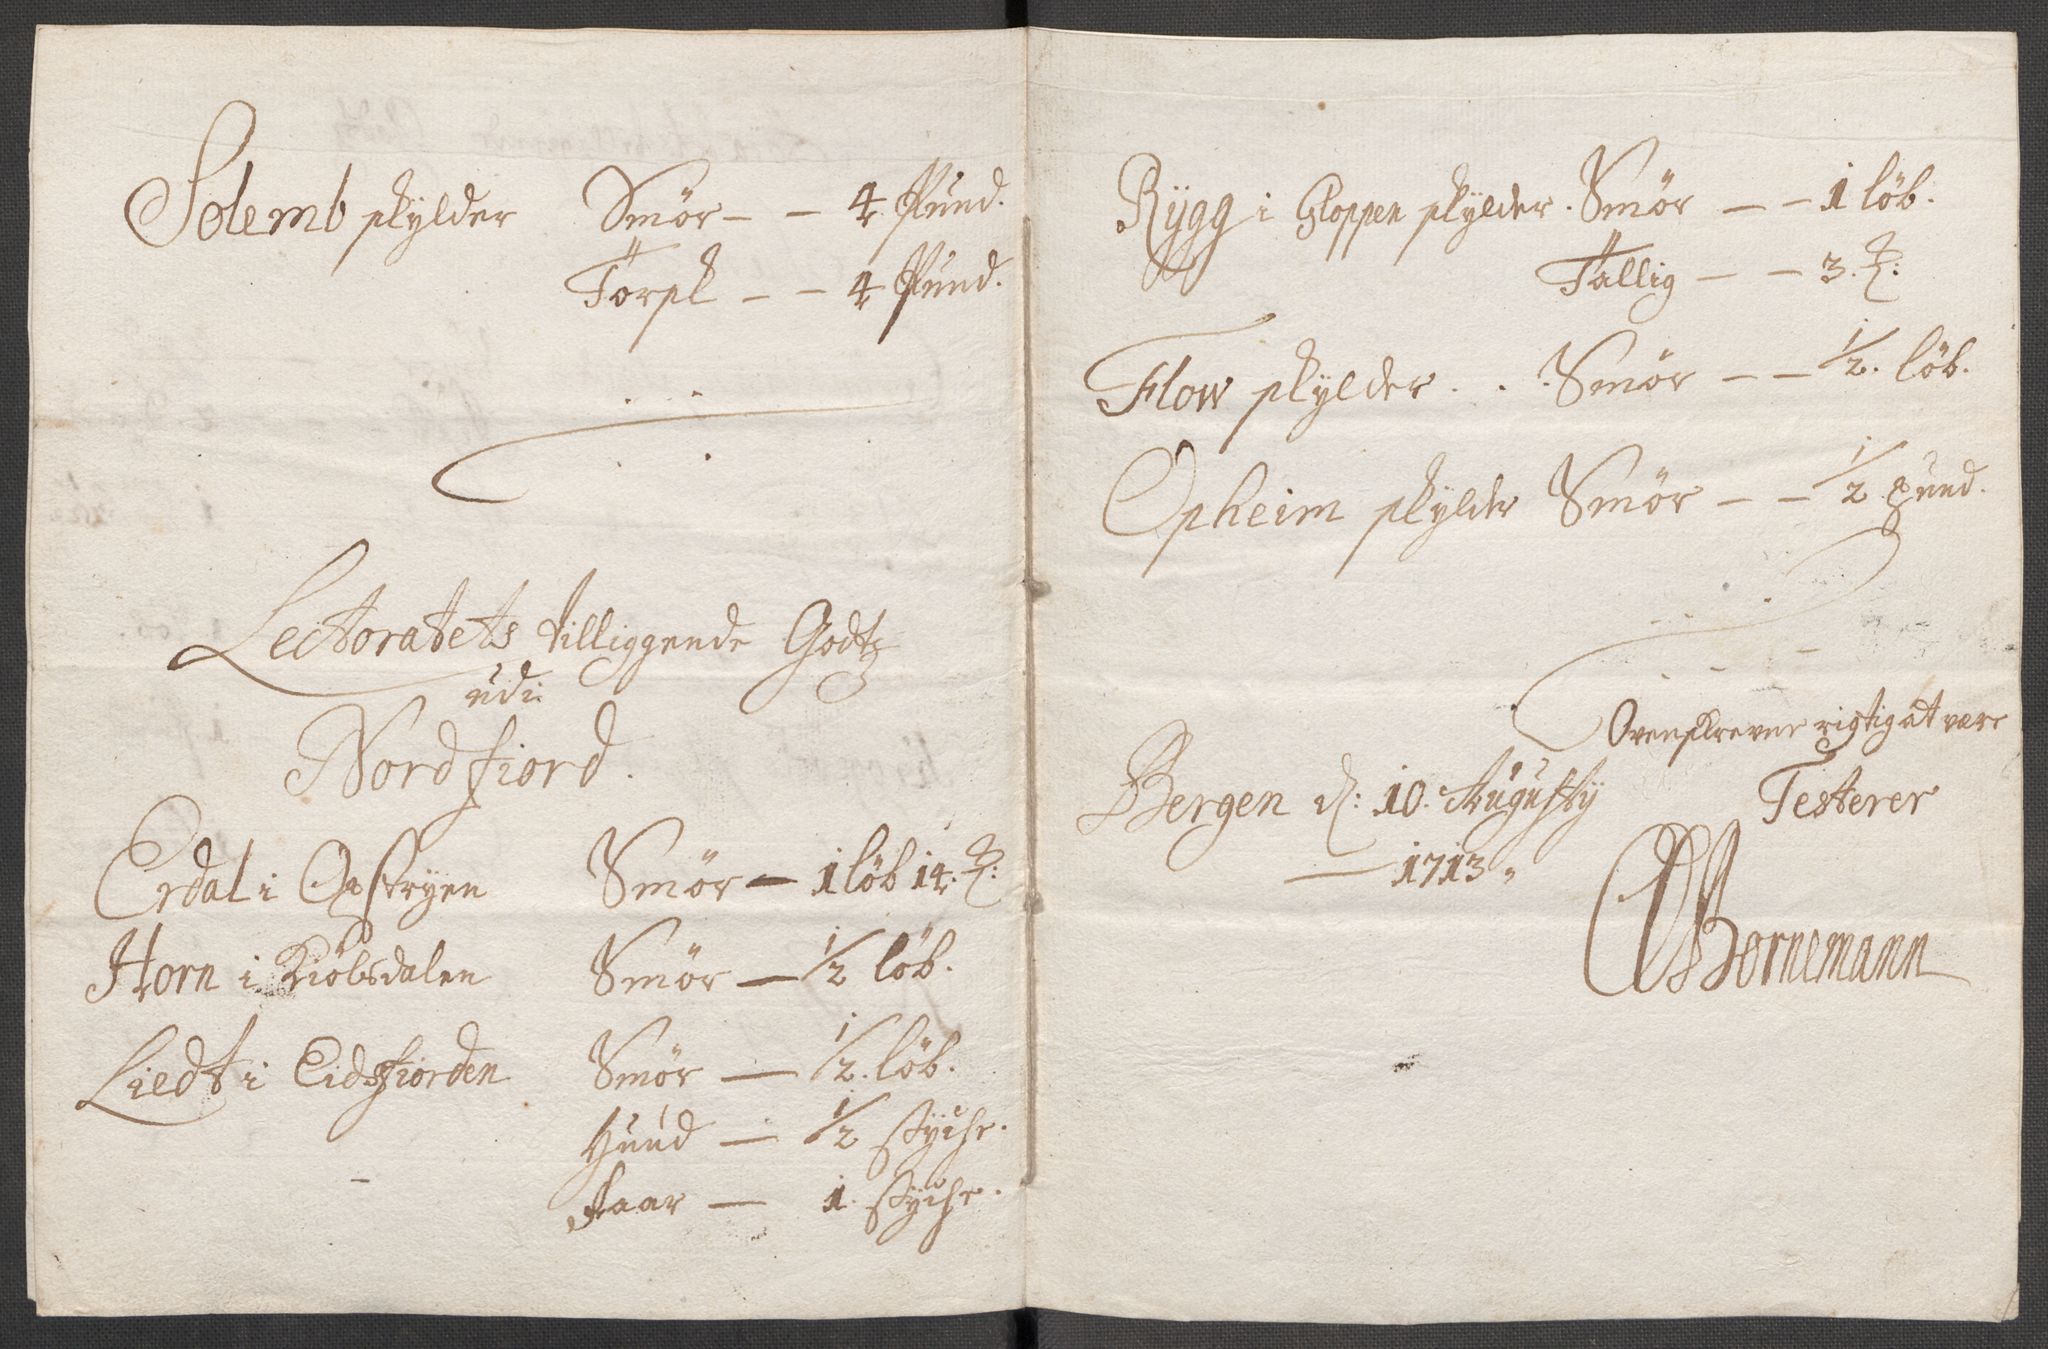 Solemb skylder Smör — — 4 Pund.
Torsk — — 4 Pund.
Lectoratets tilliggende Godtz
udi
Nordfiord.
Erdal i Opstryen Smör — 1 löb 14. ℔:
Horn i Kiölsdalen Smör — 1/2 löb.
Liedt i Eidsfiorden Smör — 1/2. löb.
Huud — 1/2 stÿche.
Faar — 1. stÿche.
Rÿgg i Gloppen skylder. Smör — — 1 löb.
Tallig — — 3. ℔:
Flow skylder . . Smör — — 1/2. löb.
Opheim skylder Smör — — 1/2 pund.
Ovenskrevne rigtig at være
Bergen d: 10. Augusty Testerer
— 1713.
Bornemann